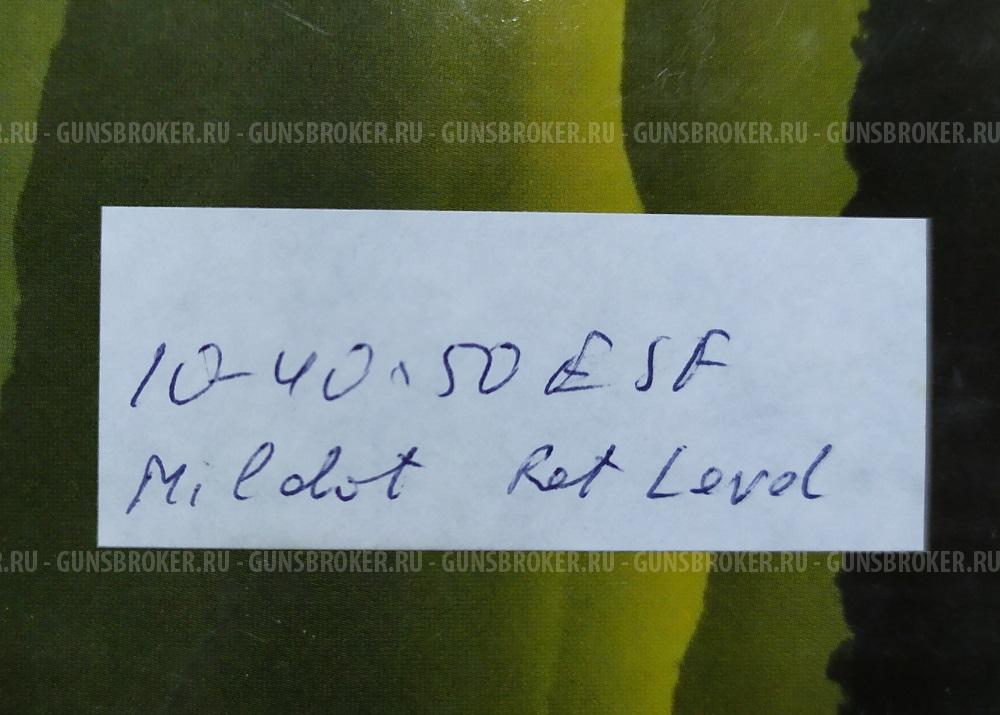 .RU - GUNSBROKER.RU - GUNSBROKER.RU - GUNSBROKER.RU - GUNSBROKER.RU - GUNSBROKER.RU
10-40x50 ESF
Mildot Ret Level
.RU - GUNSBROKER.RU - GUNSBROKER.RU - GUNSBROKER.RU - GUNSBROKER.RU - GUNSBROKER.RU